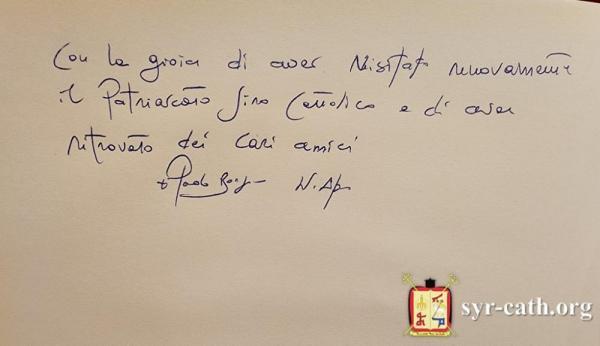 Con la gioia di aver visitato nuovamente
il Patriarcato Siro Cattolico e di aver
ritrovato dei cari amici
+ Paolo Borgia N. Ap.
syr-cath.org